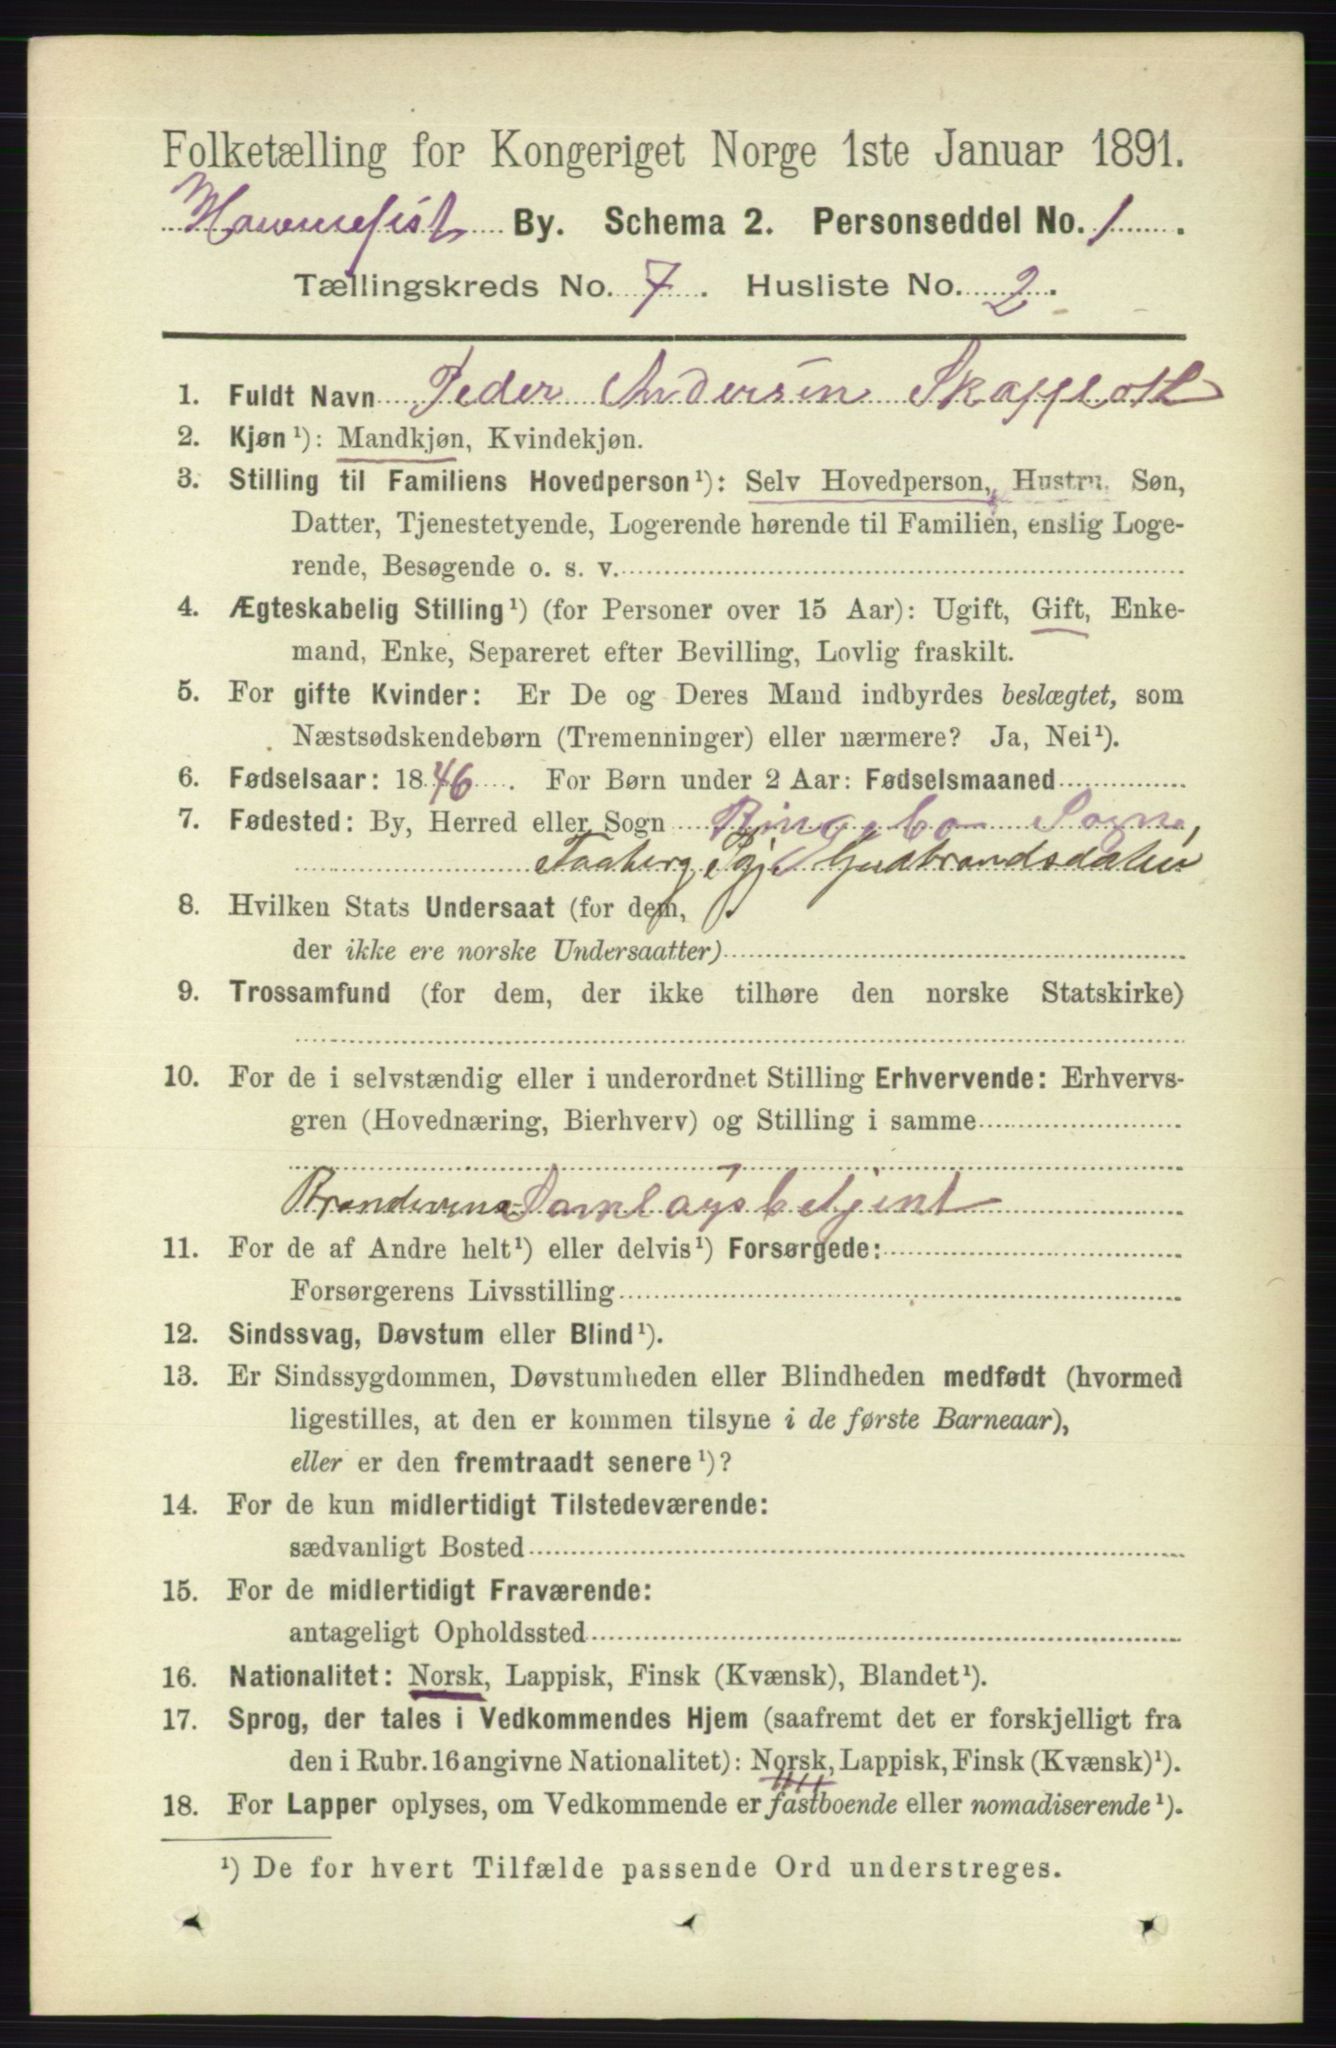 Folketælling for Kongeriget Norge 1ste Januar 1891.
By. Schema 2. Personseddel No. 1.
Tællingskreds No. 7. Husliste No. 2.
1. Fuldt Navn Peder Andersen
2. Kjøn¹): Mandkjøn, Kvindekjøn.
3. Stilling til Familiens Hovedperson¹): Selv Hovedperson, Hustru, Søn,
Datter, Tjenestetyende, Logerende hørende til Familien, enslig Loge-
rende, Besøgende o. s. v.
4. Ægteskabelig Stilling¹) (for Personer over 15 Aar): Ugift, Gift, Enke-
mand, Enke, Separeret efter Bevilling, Lovlig fraskilt.
5. For gifte Kvinder: Er De og Deres Mand indbyrdes beslægtet, som
Næstsødskendebørn (Tremenninger) eller nærmere? Ja, Nei¹).
6. Fødselsaar: 1846. For Børn under 2 Aar: Fødselsmaaned
7. Fødested: By, Herred eller Sogn Ringebo Sogn,
Faaberg Pgj. Gudbrandsdalen
8. Hvilken Stats Undersaat (for dem,
der ikke ere norske Undersaatter)
9. Trossamfund (for dem, der ikke tilhøre den norske Statskirke)
10. For de i selvstændig eller i underordnet Stilling Erhvervende: Erhvervs-
gren (Hovednæring, Bierhverv) og Stilling i samme
Brændevins Samlagsbetjent
11. For de af Andre helt¹) eller delvis¹) Forsørgede:
Forsørgerens Livsstilling
12. Sindssvag, Døvstum eller Blind¹).
13. Er Sindssygdommen, Døvstumheden eller Blindheden medfødt (hvormed
ligestilles, at den er kommen tilsyne i de første Barneaar),
eller er den fremtraadt senere¹)?
14. For de kun midlertidigt Tilstedeværende:
sædvanligt Bosted
15. For de midlertidigt Fraværende:
antageligt Opholdssted
16. Nationalitet: Norsk, Lappisk, Finsk (Kvænsk), Blandet¹).
17. Sprog, der tales i Vedkommendes Hjem (saafremt det er forskjelligt fra
den i Rubr. 16 angivne Nationalitet): Norsk, Lappisk, Finsk (Kvænsk)¹).
18. For Lapper oplyses, om Vedkommende er fastboende eller nomadiserende¹).
¹) De for hvert Tilfælde passende Ord understreges.